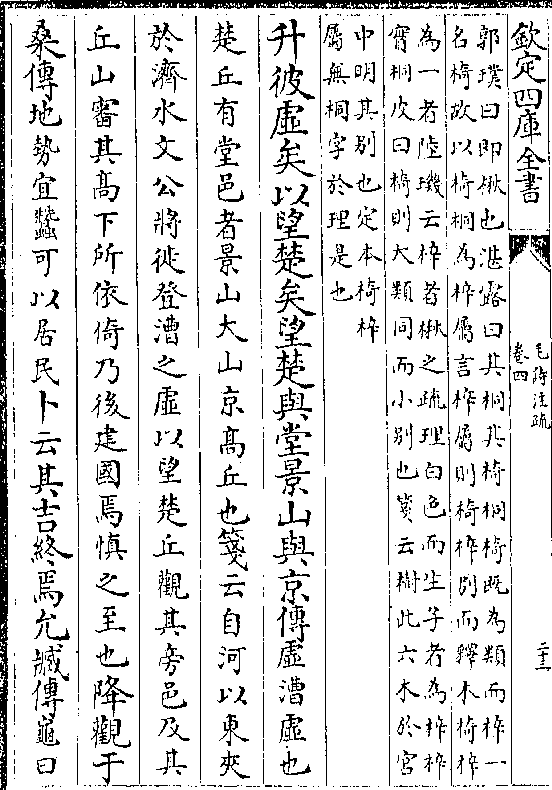 欽定四庫全書
毛詩注疏
卷四
二十三
郭璞曰即楸也湛露曰其桐其椅桐椅既為類而梓一
名椅故以椅桐為梓屬言梓屬則椅梓别而釋木椅梓
為一者陸璣云梓者楸之疏理白色而生子者為梓梓
實桐皮曰椅則大類同而小别也箋云樹此六木於宫
中明其别也定本椅梓
屬無桐字於理是也
升彼虛矣以望楚矣望楚與堂景山與京傳虛漕虛也
楚丘有堂邑者景山大山京髙丘也箋云自河以東夾
於濟水文公將徙登漕之虛以望楚丘觀其旁邑及其
丘山審其髙下所依倚乃後建國焉慎之至也降觀于
桑傳地勢宜蠶可以居民卜云其吉終焉允臧傳龜曰